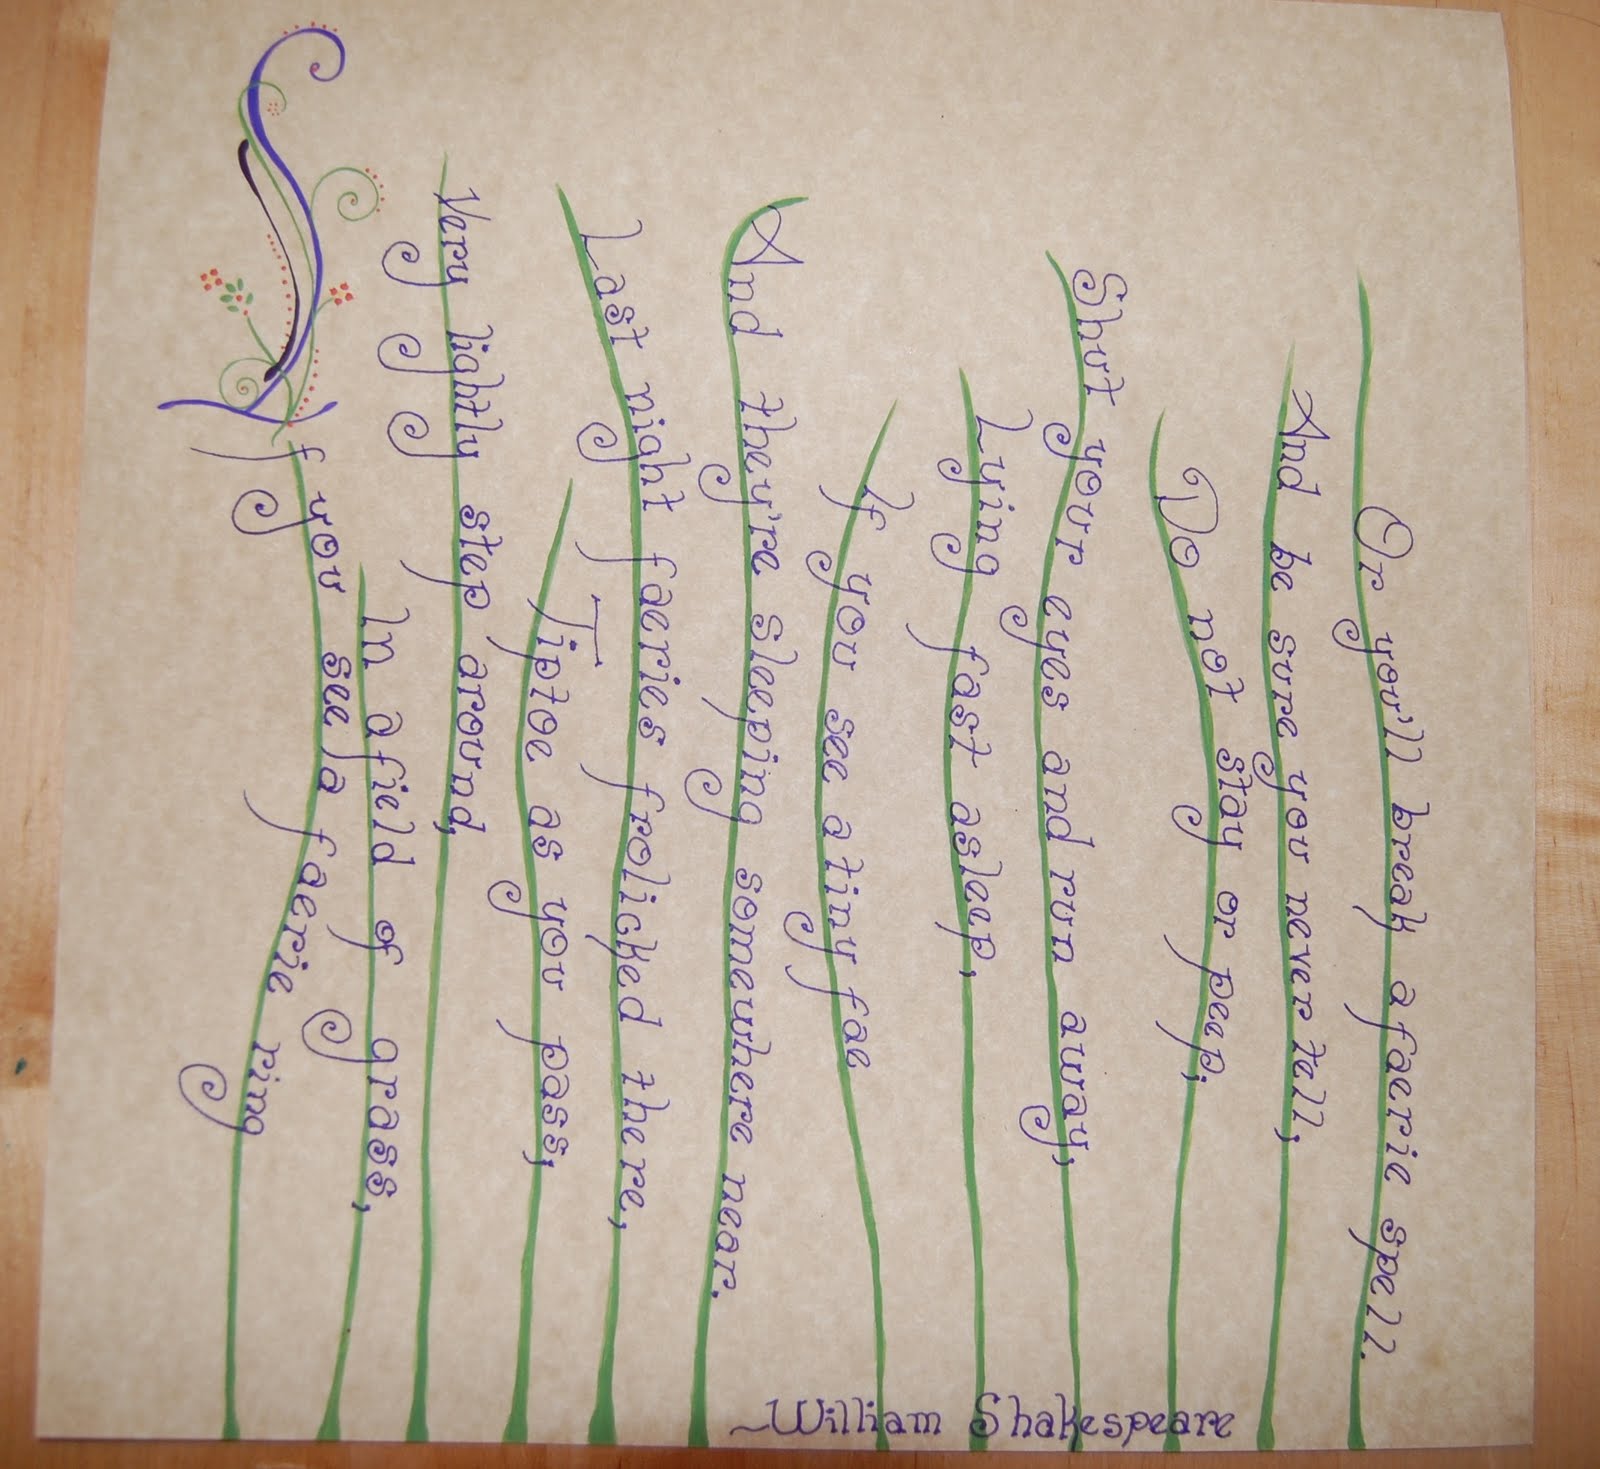 If you see a faerie ring
In a field of grass,
Very lightly step around,
Tiptoe as you pass;
Last night faeries frolicked there,
And they're sleeping somewhere near.
If you see a tiny fae
Lying fast asleep,
Shut your eyes and run away,
Do not stay or peep;
And be sure you never tell,
Or you'll break a faerie spell.
~William Shakespeare